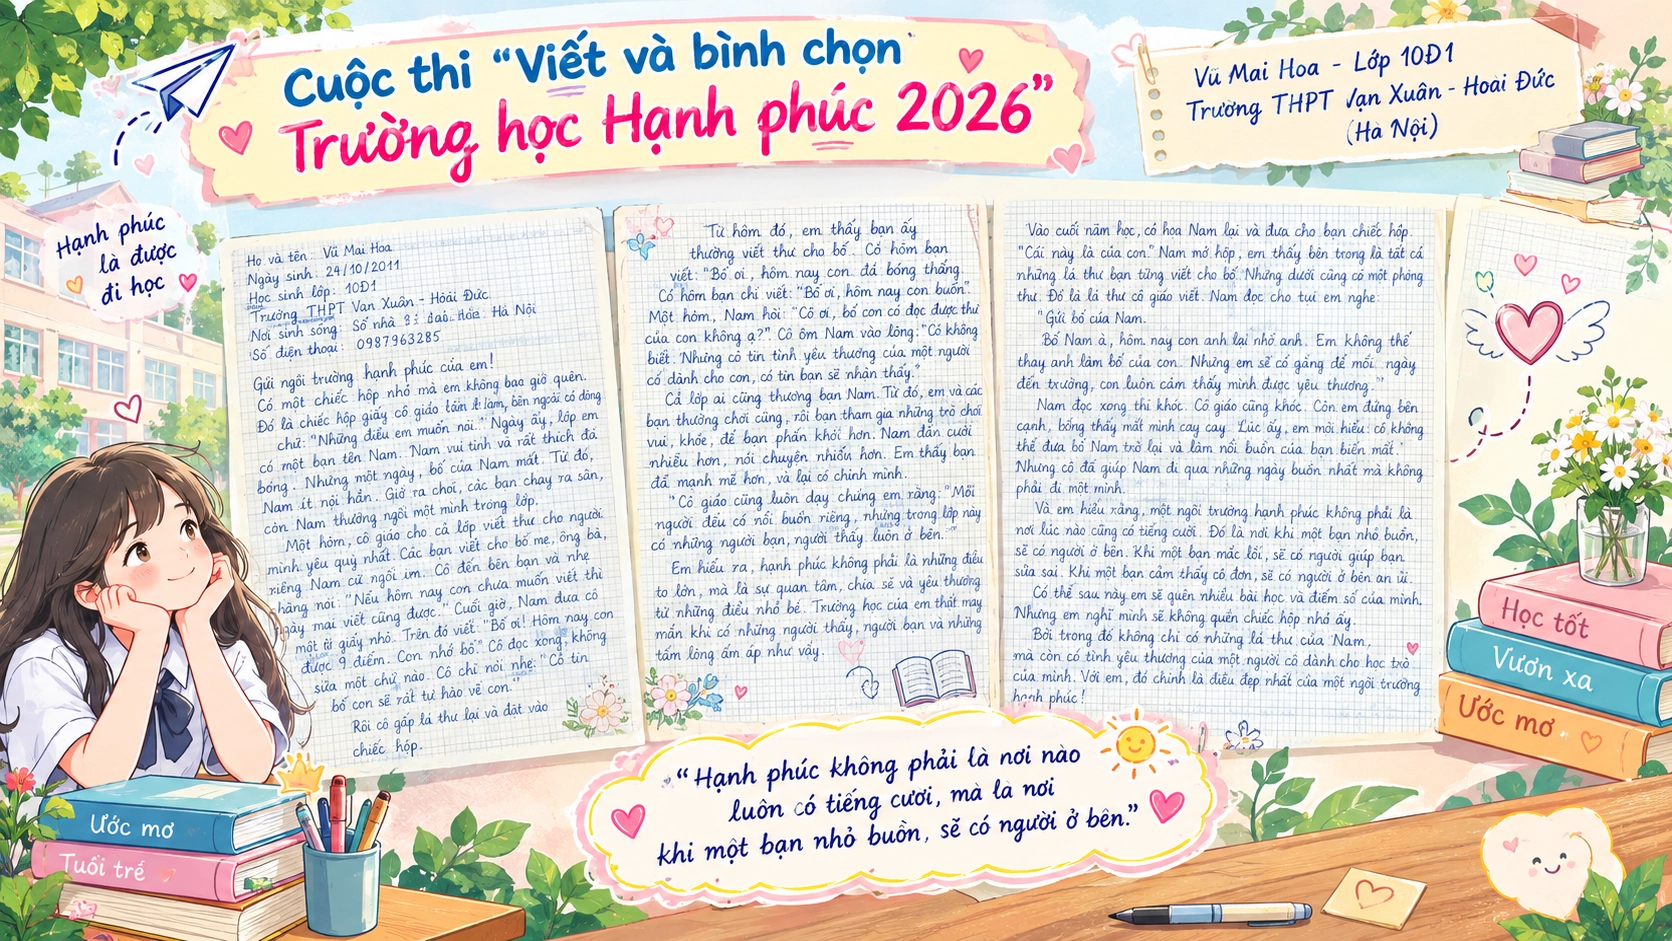 Cuộc thi “Viết và bình chọn
Trường học Hạnh phúc 2026”
Vũ Mai Hoa - Lớp 10Đ1
Trường THPT Vạn Xuân - Hoài Đức
(Hà Nội)
Hạnh phúc
là được
đi học
Họ và tên: Vũ Mai Hoa
Ngày sinh: 24/10/2011
Học sinh lớp: 10Đ1
Trường THPT Vạn Xuân - Hoài Đức
Nơi sinh sống: Số nhà Hà Nội
Số điện thoại: 0987963285
Gửi ngôi trường hạnh phúc của em!
Có một chiếc hộp nhỏ mà em không bao giờ quên.
Đó là chiếc hộp giấy cô giáo làm, bên ngoài có dòng
chữ: "Những điều em muốn nói." Ngày ấy, lớp em
có một bạn tên Nam. Nam vui tính và rất thích đá
bóng. Nhưng một ngày, bố của Nam mất. Từ đó,
Nam ít nói hẳn. Giờ ra chơi, các bạn chạy ra sân,
còn Nam thường ngồi một mình trong lớp.
Một hôm, cô giáo cho cả lớp viết thư cho người
mình yêu quý nhất. Các bạn viết cho bố mẹ, ông bà,
riêng Nam cứ ngồi im. Cô đến bên bạn và nhẹ
nhàng nói: "Nếu hôm nay con chưa muốn viết thì
ngày mai viết cũng được." Cuối giờ, Nam đưa cô
một tờ giấy nhỏ. Trên đó viết: "Bố ơi! Hôm nay con
được 9 điểm. Con nhớ bố." Cô đọc xong, không
sửa một chữ nào. Cô chỉ nói nhẹ: "Cô tin
bố con sẽ rất tự hào về con."
Rồi cô gấp lá thư lại và đặt vào
chiếc hộp.
Từ hôm đó, em thấy bạn ấy
thường viết thư cho bố. Có hôm bạn
viết: "Bố ơi, hôm nay con đá bóng thắng.
Có hôm bạn chỉ viết: "Bố ơi, hôm nay con buồn".
Một hôm, Nam hỏi: "Cô ơi, bố con có đọc được thư
của con không ạ?". Cô ôm Nam vào lòng: "Cô không
biết. Nhưng cô tin tình yêu thương của một người
cô dành cho con, cô tin bạn sẽ nhận thấy."
Cả lớp ai cũng thương bạn Nam. Từ đó, em và các
bạn thường chơi cùng, rồi bạn tham gia những trò chơi
vui, khỏe, để bạn phấn khởi hơn. Nam dần cười
nhiều hơn, nói chuyện nhiều hơn. Em thấy bạn
đã mạnh mẽ hơn, và lại có chính mình.
"Cô giáo cũng luôn dạy chúng em rằng: "Mỗi
người đều có nỗi buồn riêng, nhưng trong lớp này
có những người bạn, người thầy luôn ở bên."
Em hiểu ra, hạnh phúc không phải là những điều
to lớn, mà là sự quan tâm, chia sẻ và yêu thương
từ những điều nhỏ bé. Trường học của em thật may
mắn khi có những người thầy, người bạn và những
tấm lòng ấm áp như vậy.
Vào cuối năm học, cô họa Nam lại và đưa cho bạn chiếc hộp.
"Cái này là của con." Nam mở hộp, em thấy bên trong là tất cả
những lá thư bạn từng viết cho bố. Nhưng dưới cùng có một phong
thư. Đó là lá thư cô giáo viết. Nam đọc cho tụi em nghe:
"Gửi bố của Nam.
Bố Nam à, hôm nay con anh lại nhớ anh. Em không thể
thay anh làm bố của con. Nhưng em sẽ cố gắng để mỗi ngày
đến trường, con luôn cảm thấy mình được yêu thương."
Nam đọc xong thì khóc. Cô giáo cũng khóc. Còn em đứng bên
cạnh, bỗng thấy mắt mình cay cay. Lúc ấy, em mới hiểu: cô không
thể đưa bố Nam trở lại và làm nỗi buồn của bạn biến mất.
Nhưng cô đã giúp Nam đi qua những ngày buồn nhất mà không
phải đi một mình.
Và em hiểu rằng, một ngôi trường hạnh phúc không phải là
nơi lúc nào cũng có tiếng cười. Đó là nơi khi một bạn nhỏ buồn,
sẽ có người ở bên. Khi một bạn mắc lỗi, sẽ có người giúp bạn
sửa sai. Khi một bạn cảm thấy cô đơn, sẽ có người ở bên an ủi.
Có thể sau này em sẽ quên nhiều bài học và điểm số của mình.
Nhưng em nghĩ mình sẽ không quên chiếc hộp nhỏ ấy.
Bởi trong đó không chỉ có những lá thư của Nam,
mà còn có tình yêu thương của một người cô dành cho học trò
của mình. Với em, đó chính là điều đẹp nhất của một ngôi trường
hạnh phúc!
“Hạnh phúc không phải là nơi nào
luôn có tiếng cười, mà là nơi
khi một bạn nhỏ buồn, sẽ có người ở bên.”
Học tốt
Vươn xa
Ước mơ
Ước mơ
Tuổi trẻ